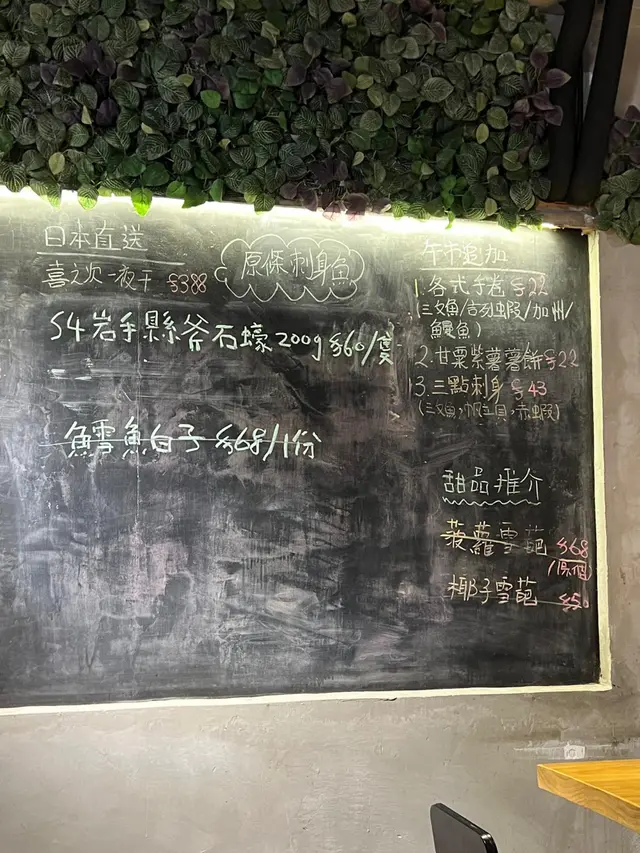 日本直送
喜之次一夜干 $388
原條刺身魚
54岩手縣斧石蠔 200g $60/隻
鱈魚白子 $68/1份
午市追加
1. 各式手卷 $22
(三文魚/吉列蝦/加州/
鰻魚)
2. 甘粟紫薯薯餅 $22
3. 三點刺身 $43
(三文魚,帆立貝,赤蝦)
甜品推介
菠蘿雪葩 $68
/(原個)
椰子雪葩 $50